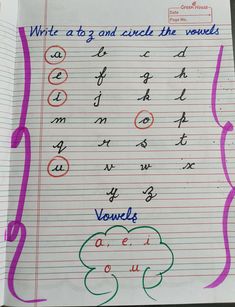 Green House
Date
Page No.
Write a to z and circle the vowels
a b c d
e f g h
i j k l
m n o p
q r s t
u v w x
y z
Vowels
a, e, i
o u